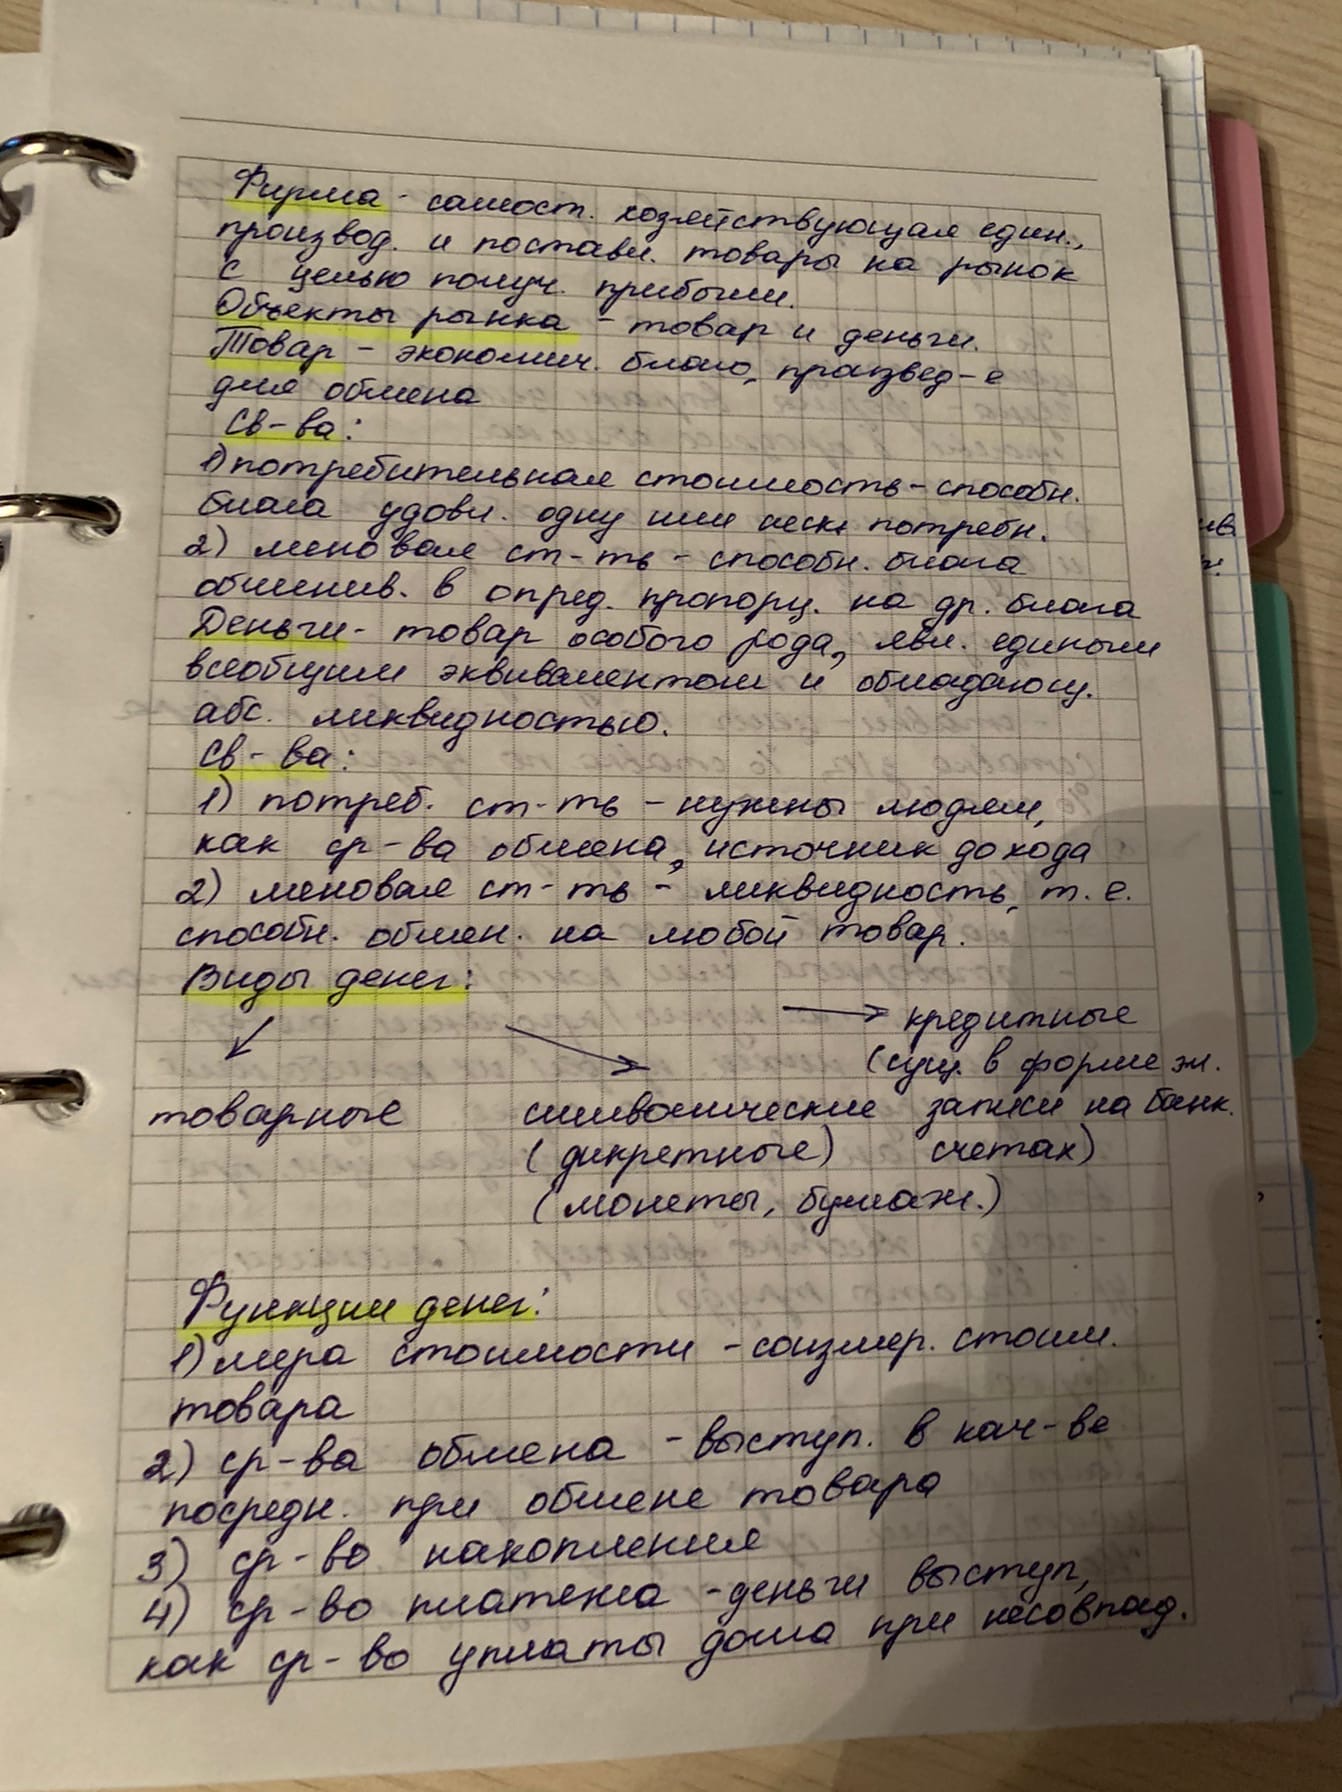 Фирма - самост. хозяйствующая един.,
производ. и поставл. товары на рынок
с целью получ. прибыли.
Объекты рынка - товар и деньги.
Товар - экономич. благо, произвед-е
для обмена
Св-ва:
1) потребительная стоимость - способн.
блага удовл. одну или неск. потребн.
2) меновая ст-ть - способн. блага
обменив. в опред. пропорц. на др. блага
Деньги - товар особого рода, явл. единым
всеобщим эквивалентом и обладающ.
абс. ликвидностью.
Св-ва:
1) потреб. ст-ть - нужны людям,
как ср-ва обмена, источник дохода
2) меновая ст-ть - ликвидность, т.е.
способн. обмен. на любой товар.
Виды денег:
товарные
символические
(дикретные)
(монеты, бумажн.)
кредитные
(сущ. в форме эл.
записи на банк.
счетах)
Функции денег:
1) мера стоимости - соизмер. стоим.
товара
2) ср-ва обмена - выступ. в кач-ве
посредн. при обмене товара
3) ср-во накопления
4) ср-во платежа - деньги выступ,
как ср-во уплаты долга при несовпад.